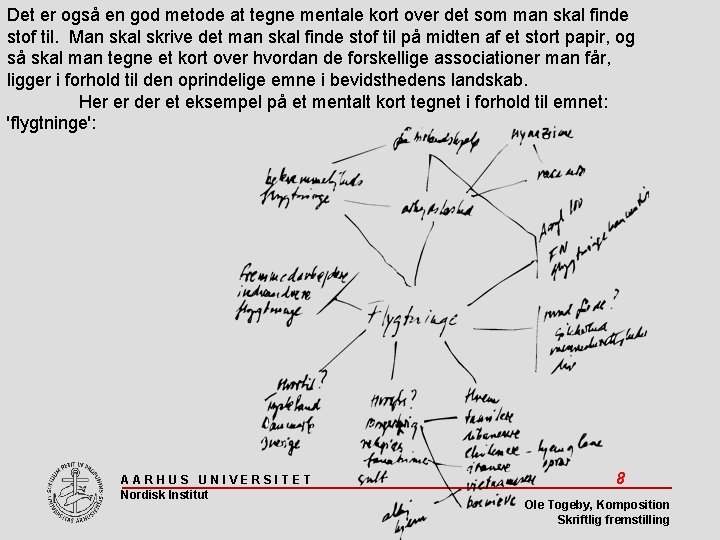 Det er også en god metode at tegne mentale kort over det som man skal finde
stof til. Man skal skrive det man skal finde stof til på midten af et stort papir, og
så skal man tegne et kort over hvordan de forskellige associationer man får,
ligger i forhold til den oprindelige emne i bevidsthedens landskab.
Her er der et eksempel på et mentalt kort tegnet i forhold til emnet:
'flygtninge':
nynazisme
racisme
bekvemmeligheds
flygtninge
arbejdsløshed
Asyl
FN
flygtninge
fremmedarbejdere
indvandrere
flygtninge
Flygtninge
sikkerhed
Hvortil?
Tyskland
Danmark
Sverige
Hvorfor?
religiøs
sult
Hvem
tamilere
libanesere
chilenere - hjem og lave
oprør
iranere
vietnamesere
bosniere
hjem
AARHUS UNIVERSITET
Nordisk Institut
8
Ole Togeby, Komposition
Skriftlig fremstilling